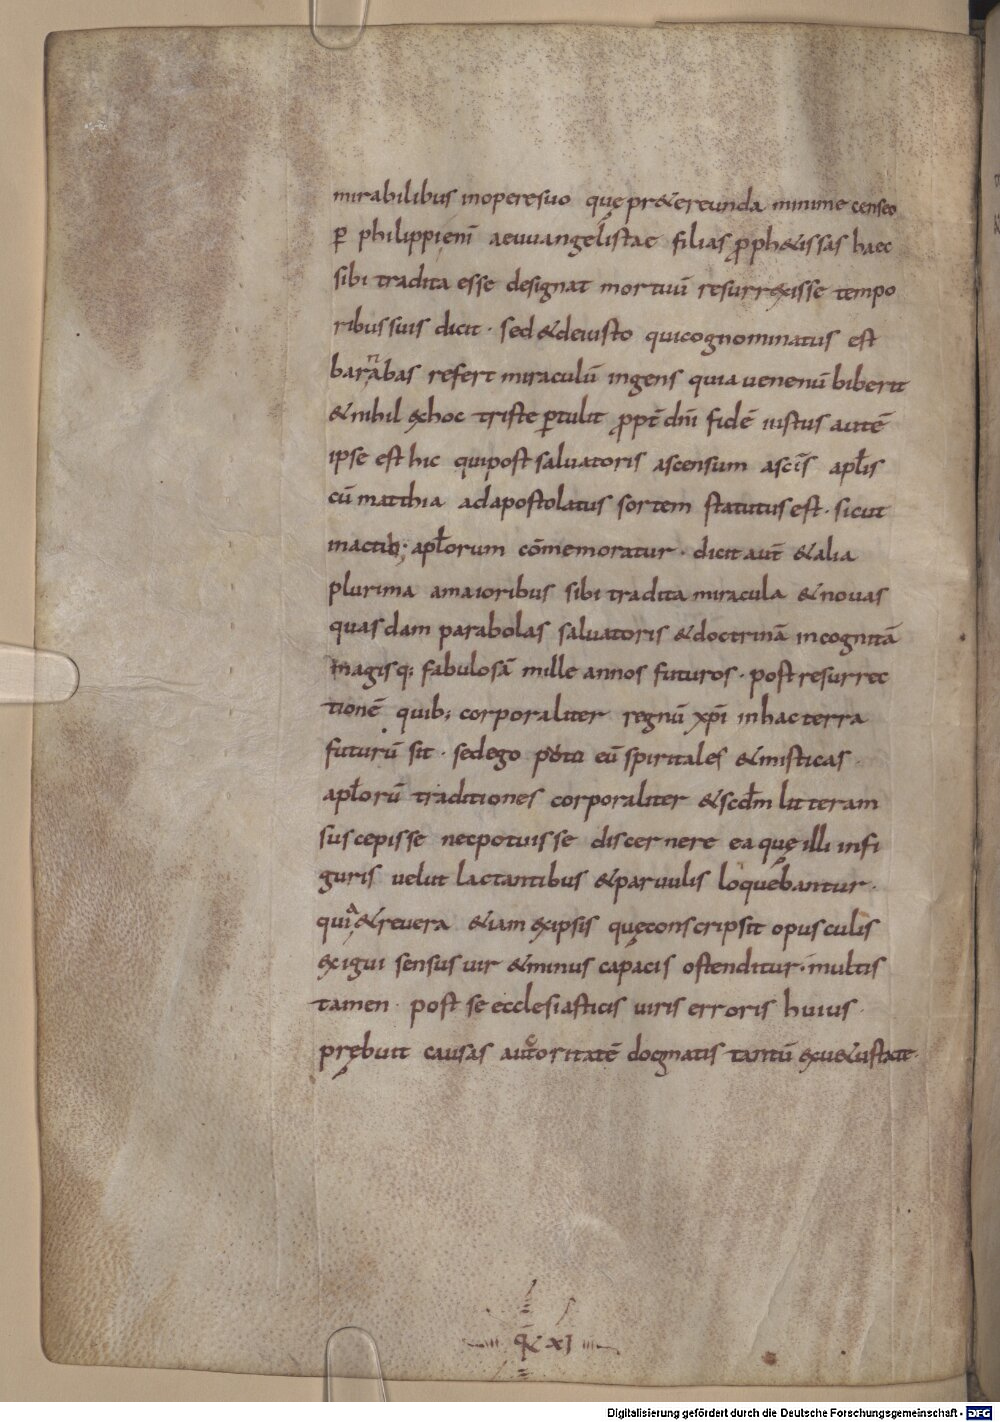 mirabilibus inoperesuo quę pr&ereunda minime censeo
ꝑ philippieni aeuuangelistae filias ꝓph&issas haec
sibi tradita esse designat mortuū resurrexisse tempo
ribus suis dicit · sed &deiusto quicognominatus est
barnabas refert miraculū ingens quia uenenū biberit
&nihil exhoc triste ꝑtulit ꝓpt̄ dn̄i fidē iustus autē
ipse est hic quipost saluatoris ascensum asc̄is apł̄is
cū matthia adapostolatus sortem statutus est · sicut
inactib; apł̄orum cōmemoratur · dicit aut̄ &alia
plurima amaioribus sibi tradita miracula &nouas
quasdam parabolas saluatoris &doctrinā incognitā
magisq; fabulosā mille annos futuros · post resurrec
tionē quib; corporaliter regnū xp̄i inhac terra
futurū sit · sedego puto eū spiritales &misticas
apł̄orū traditiones corporaliter &scd̄m litteram
suscepisse necpotuisse discernere ea quę illi infi
guris uelut lactantibus &paruulis loquebantur ·
quia &reuera &iam exipsis quęconscripsit opusculis
exigui sensus uir &minus capacis ostenditur · multis
tamen · post se ecclesiasticis uiris erroris huius ·
prębuit causas auctoritatē docmatis tantū exuetustate ·
q̄r xi
Digitalisierung gefördert durch die Deutsche Forschungsgemeinschaft - DFG